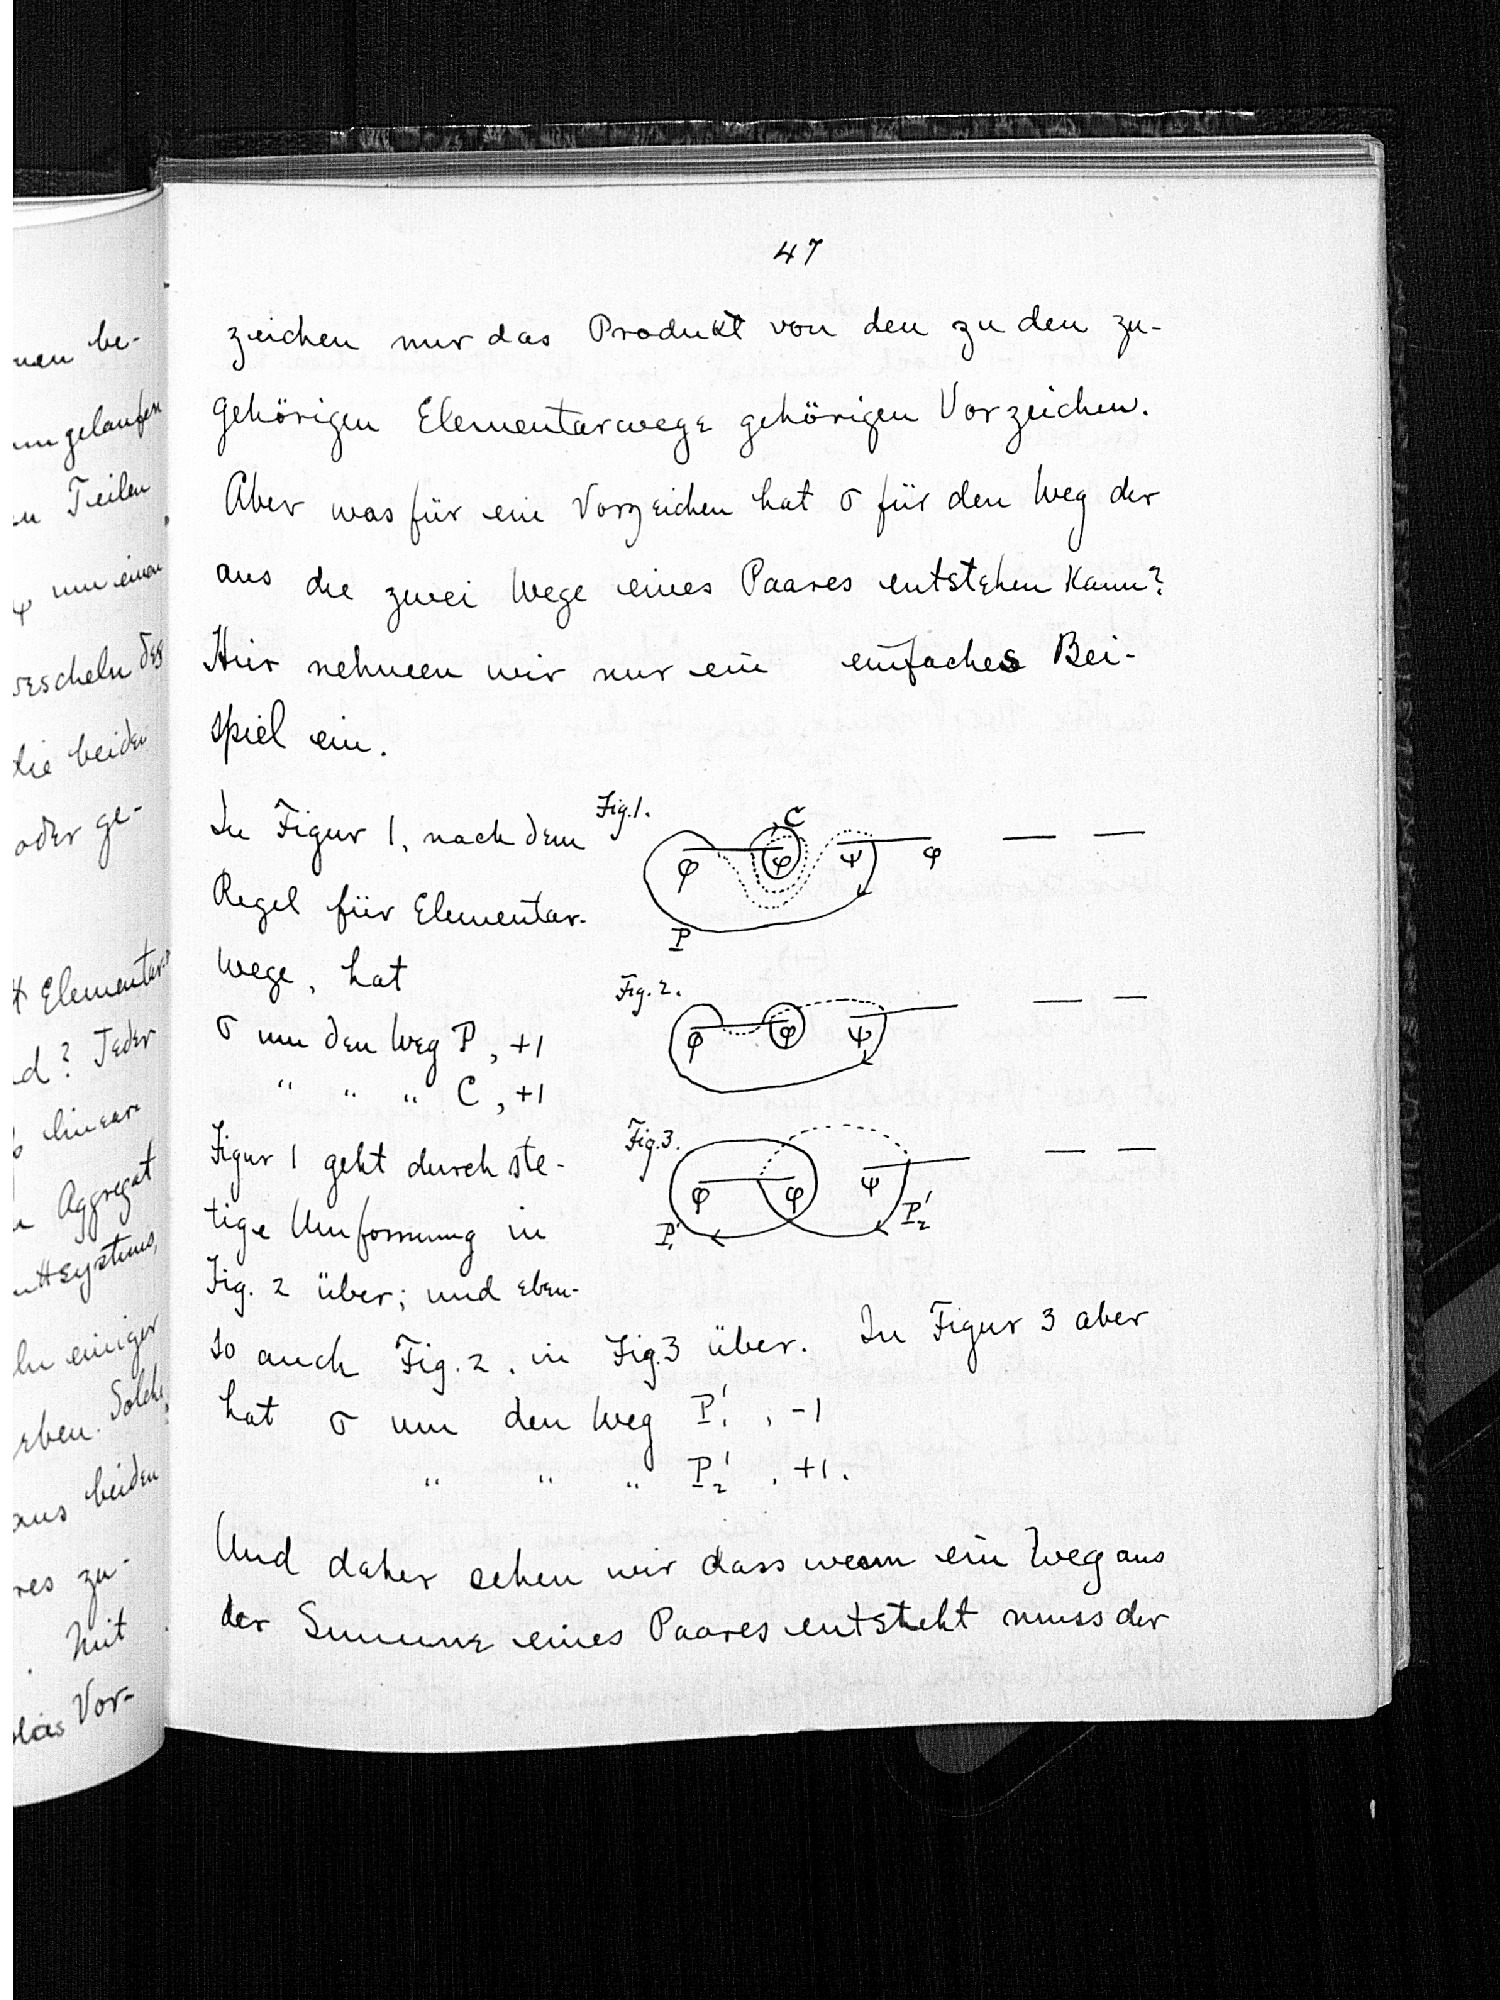 nen be-
umgelaufen
en Teilen
φ um einen
wescheln des
die beiden
oder ge-
H Elementar-
nd? Jeder
lineare
Aggregat
ittsystems,
ln einiger
erben. Solche
aus beiden
res zu-
. Mit
das Vor-
47
zeichen nur das Produkt von den zu den zu-
gehörigen Elementarwege gehörigen Vorzeichen.
Aber was für ein Vorzeichen hat σ für den Weg der
aus die zwei Wege eines Paares entstehen kann?
Hier nehmen wir nur ein einfaches Bei-
spiel ein.
In Figur 1, nach dem
Regel für Elementar-
wege, hat
σ um den Weg P, +1
" " " C, +1
Figur 1 geht durch ste-
tige Umformung in
Fig. 2 über; und eben-
so auch Fig. 2, in Fig. 3 über. In Figur 3 aber
hat σ um den Weg P₁', -1
" " " P₂', +1.
Und daher sehen wir dass wenn ein Weg aus
der Summe eines Paares entsteht muss der
Fig. 1.
C
φ φ ψ φ
P
Fig. 2.
φ φ ψ
Fig. 3.
φ φ ψ
P₁' P₂'